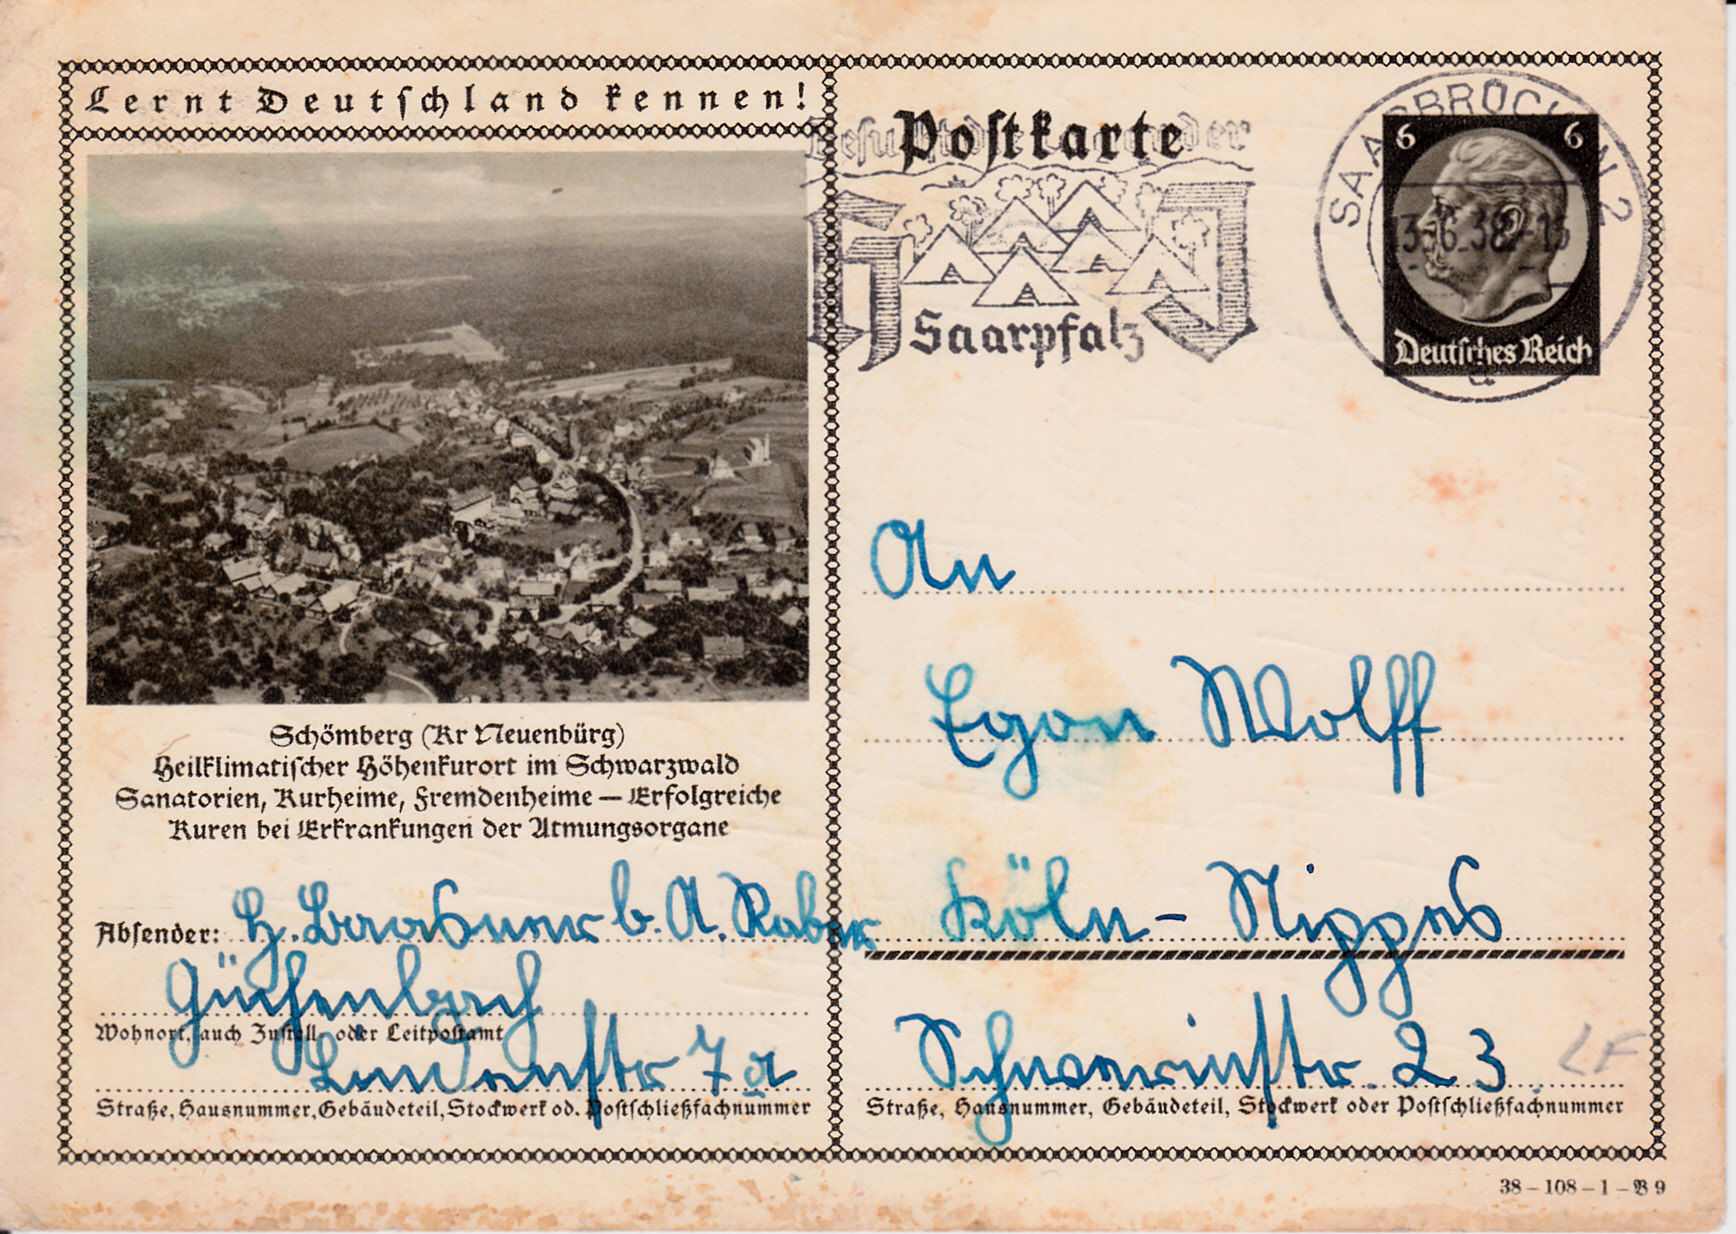 Lernt Deutschland kennen!
Schömberg (Kr Neuenbürg)
Heilklimatischer Höhenkurort im Schwarzwald
Sanatorien, Kurheime, Fremdenheime — Erfolgreiche
Kuren bei Erkrankungen der Atmungsorgane
Absender: H. Baasner b. A. Raber
Güchenbach
Wohnort, auch Zustell- oder Leitpostamt
Lindenstr 7a
Straße, Hausnummer, Gebäudeteil, Stockwerk od. Postschließfachnummer
Postkarte
der
HJ
Saarpfalz
SAARBRÜCKEN 2
38
6 6
Deutsches Reich
An
Egon Wolff
Köln - Nippes
Schwerinstr. 23
LF
Straße, Hausnummer, Gebäudeteil, Stockwerk oder Postschließfachnummer
38 – 108 – 1 – B 9